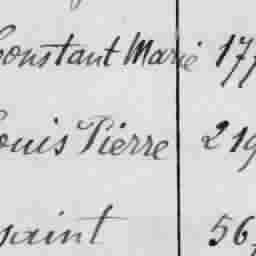 Constant Marie 177
Louis Pierre 219
saint 56